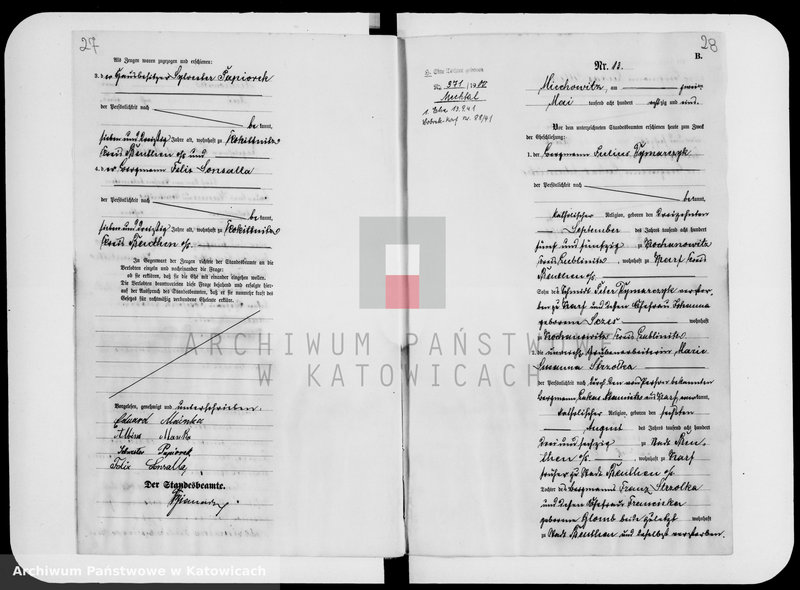 27
Als Zeugen waren zugezogen und erschienen:
3. der Hausbesitzer Sylvester Papiorek
der Persönlichkeit nach
be kannt,
sieben und dreißig Jahre alt, wohnhaft zu Rokittnitz
Kreis Beuthen o/s und
4. der Bergmann Felix Sonsalla
der Persönlichkeit nach
be kannt,
sieben und dreißig Jahre alt, wohnhaft zu Rokittnitz
Kreis Beuthen o/s.
In Gegenwart der Zeugen richtete der Standesbeamte an die
Verlobten einzeln und nacheinander die Frage:
ob sie erklären, daß sie die Ehe mit einander eingehen wollen.
Die Verlobten beantworteten diese Frage bejahend und erfolgte hier-
auf der Ausspruch des Standesbeamten, daß er sie nunmehr kraft des
Gesetzes für rechtmäßig verbundene Eheleute erkläre.
Vorgelesen, genehmigt und unterschrieben.
Eduard Mainka
Albina
Sylvester Papiorek
Felix Sonsalla
Der Standesbeamte.
28
B.
Nr. 13.
Miechowitz, am zwei
Mai tausend acht hundert und
Vor dem unterzeichneten Standesbeamten erschienen heute zum Zweck
der Eheschließung:
1. der Bergmann Julius Rymarczyk
der Persönlichkeit nach
be kannt,
katholischer Religion, geboren den dreizehnten
September des Jahres tausend acht hundert
fünf und fünfzig zu Kochanowitz
Kreis Lublinitz, wohnhaft zu Karf Kreis
Beuthen o/s.
Sohn des Schmidt Peter Rymarczyk verstor-
ben zu Karf und dessen Ehefrau Johanna
geborene wohnhaft
zu Kochanowitz Kreis Lublinitz
2. die Grubenarbeiterin Marie
Susanna Strzolka
der Persönlichkeit nach durch den von Person bekannten
Bergmann Lukas aus Karf kannt,
katholischer Religion, geboren den sechsten
August des Jahres tausend acht hundert
drei und sechszig zu Stadt Beu-
then o/s., wohnhaft zu Karf
früher zu Stadt Beuthen o/s.
Tochter des Bergmanns Franz Strzolka
und dessen Ehefrau Franciska
geborene Klomb beide zuletzt wohnhaft
zu Stadt Beuthen und daselbst verstorben.
ARCHIWUM PAŃSTWOWE
W KATOWICACH
Archiwum Państwowe w Katowicach